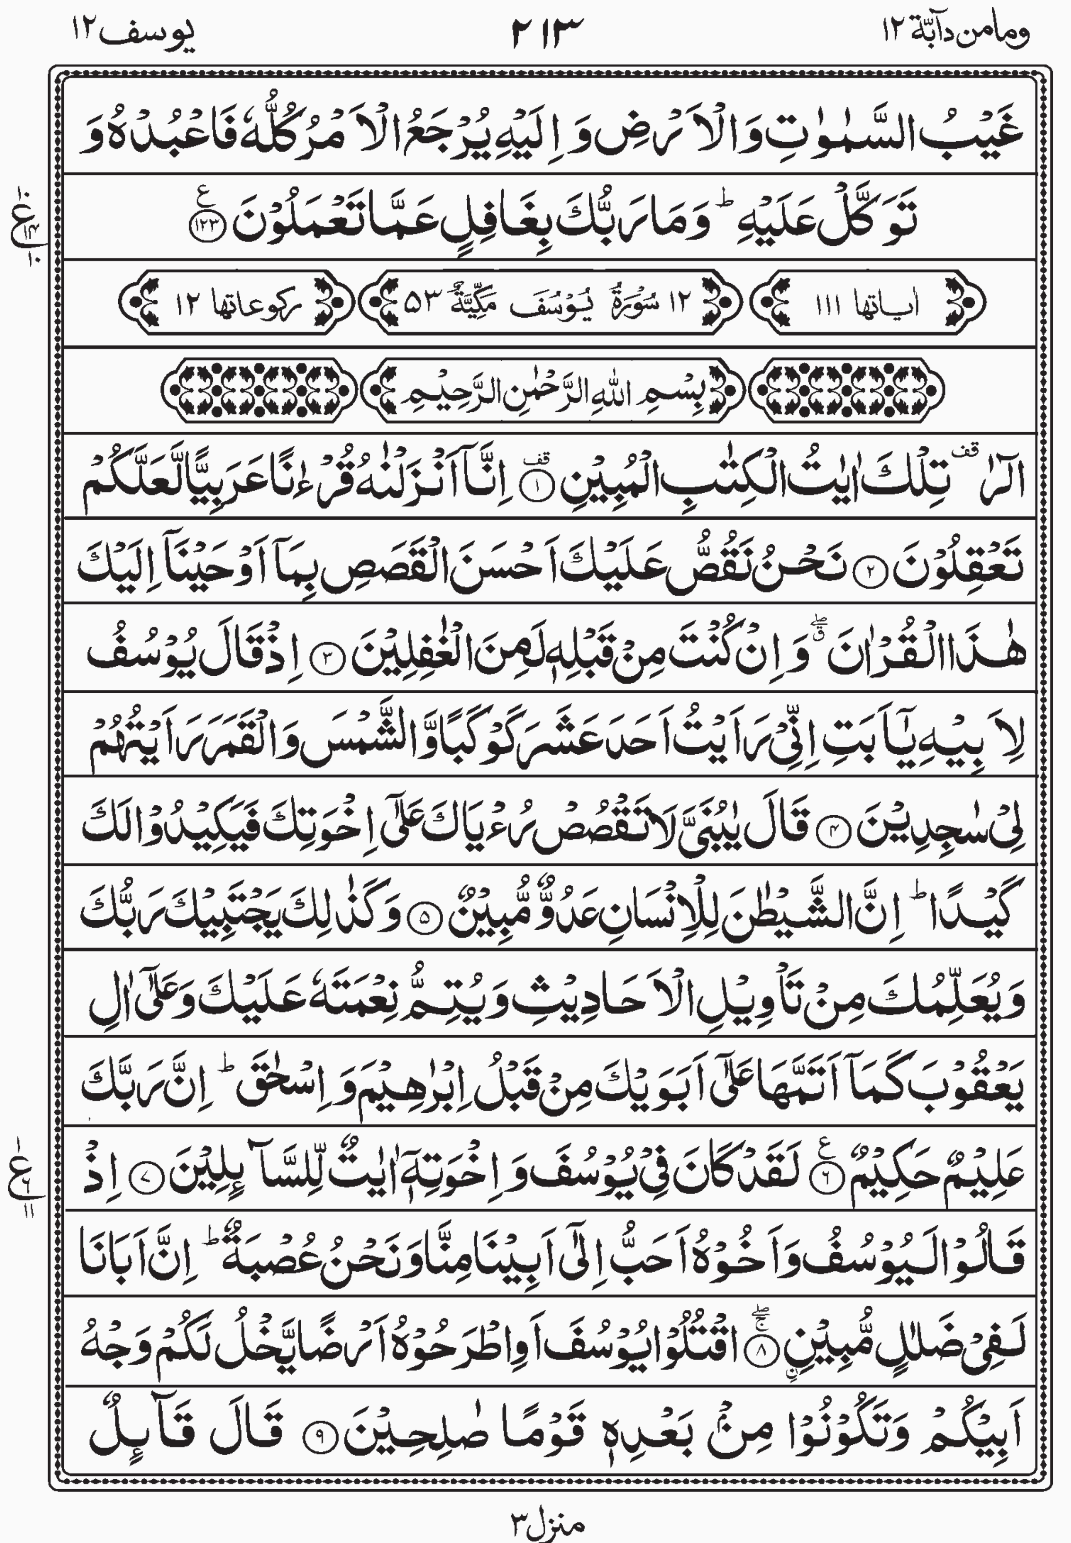 يوسف ١٢ ٢١٣ ومامن دآبّة ١٢
غَيْبُ السَّمٰوٰتِ وَالْاَرْضِ وَ اِلَيْهِ يُرْجَعُ الْاَمْرُ كُلُّهٗ فَاعْبُدْهُ وَ
تَوَكَّلْ عَلَيْهِ ؕ وَمَا رَبُّكَ بِغَافِلٍ عَمَّا تَعْمَلُوْنَ ﴿۱۲۳﴾ ع
ع ١٠ ١٤ ١٠
اٰیاتها ١١١ ١٢ سُوْرَةُ يُوْسُفَ مَكِّيَّةٌ ٥٣ ركوعاتها ١٢
بِسْمِ اللّٰهِ الرَّحْمٰنِ الرَّحِيْمِ
الٓرٰ قف تِلْكَ اٰيٰتُ الْكِتٰبِ الْمُبِيْنِ ﴿۱﴾ قف اِنَّاۤ اَنْزَلْنٰهُ قُرْءٰنًا عَرَبِيًّا لَّعَلَّكُمْ
تَعْقِلُوْنَ ﴿۲﴾ نَحْنُ نَقُصُّ عَلَيْكَ اَحْسَنَ الْقَصَصِ بِمَاۤ اَوْحَيْنَاۤ اِلَيْكَ
هٰذَا الْقُرْاٰنَ ۖق وَ اِنْ كُنْتَ مِنْ قَبْلِهٖ لَمِنَ الْغٰفِلِيْنَ ﴿۳﴾ اِذْ قَالَ يُوْسُفُ
لِاَبِيْهِ يٰۤاَبَتِ اِنِّيْ رَاَيْتُ اَحَدَ عَشَرَ كَوْكَبًا وَّالشَّمْسَ وَالْقَمَرَ رَاَيْتُهُمْ
لِيْ سٰجِدِيْنَ ﴿۴﴾ قَالَ يٰبُنَيَّ لَا تَقْصُصْ رُءْيَاكَ عَلٰۤى اِخْوَتِكَ فَيَكِيْدُوْا لَكَ
كَيْدًا ؕ اِنَّ الشَّيْطٰنَ لِلْاِنْسَانِ عَدُوٌّ مُّبِيْنٌ ﴿۵﴾ وَكَذٰلِكَ يَجْتَبِيْكَ رَبُّكَ
وَيُعَلِّمُكَ مِنْ تَاْوِيْلِ الْاَحَادِيْثِ وَيُتِمُّ نِعْمَتَهٗ عَلَيْكَ وَعَلٰۤى اٰلِ
يَعْقُوْبَ كَمَاۤ اَتَمَّهَا عَلٰۤى اَبَوَيْكَ مِنْ قَبْلُ اِبْرٰهِيْمَ وَ اِسْحٰقَ ؕ اِنَّ رَبَّكَ
عَلِيْمٌ حَكِيْمٌ ﴿۶﴾ ع لَقَدْ كَانَ فِيْ يُوْسُفَ وَ اِخْوَتِهٖۤ اٰيٰتٌ لِّلسَّآىِٕلِيْنَ ﴿۷﴾ اِذْ
ع ١ ٦ ١١
قَالُوْا لَيُوْسُفُ وَ اَخُوْهُ اَحَبُّ اِلٰۤى اَبِيْنَا مِنَّا وَنَحْنُ عُصْبَةٌ ؕ اِنَّ اَبَانَا
لَفِيْ ضَلٰلٍ مُّبِيْنِ ﴿۸﴾ ۖۚ اقْتُلُوْا يُوْسُفَ اَوِ اطْرَحُوْهُ اَرْضًا يَّخْلُ لَكُمْ وَجْهُ
اَبِيْكُمْ وَتَكُوْنُوْا مِنْۢ بَعْدِهٖ قَوْمًا صٰلِحِيْنَ ﴿۹﴾ قَالَ قَآىِٕلٌ
منزل ٣